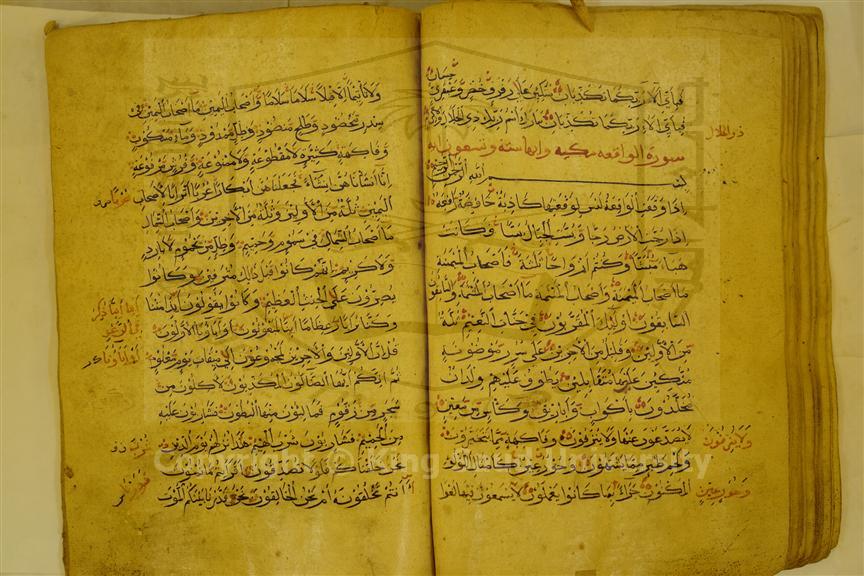 حسان
فبأي آلاء ربكما تكذبان متكئين على رفرف خضر وعبقري
فبأي آلاء ربكما تكذبان تبارك اسم ربك ذي الجلال والإكرام
ذو الجلال
سورة الواقعة مكية وآيها ستة وتسعون آية
بسم الله الرحمن الرحيم
إذا وقعت الواقعة ليس لوقعتها كاذبة خافضة رافعة
إذا رجت الأرض رجا وبست الجبال بسا فكانت
هباء منبثا وكنتم أزواجا ثلثة فأصحاب الميمنة
ما أصحاب الميمنة وأصحاب المشئمة ما أصحاب المشئمة والسابقون
السابقون أولئك المقربون في جنات النعيم ثلة
من الأولين وقليل من الآخرين على سرر موضونة
متكئين عليها متقابلين يطوف عليهم ولدان
مخلدون بأكواب وأباريق وكأس من معين
لا يصدعون عنها ولا ينزفون وفاكهة مما يتخيرون
ولحم طير مما يشتهون وحور عين كأمثال اللؤلؤ
المكنون جزاء بما كانوا يعملون لا يسمعون فيها لغوا
ولا تأثيما إلا قيلا سلاما سلاما وأصحاب اليمين ما أصحاب اليمين في
سدر مخضود وطلح منضود وظل ممدود وماء مسكوب
وفاكهة كثيرة لا مقطوعة ولا ممنوعة وفرش مرفوعة
إنا أنشأناهن إنشاء فجعلناهن أبكارا عربا أترابا لأصحاب
اليمين ثلة من الأولين وثلة من الآخرين وأصحاب الشمال
ما أصحاب الشمال في سموم وحميم وظل من يحموم لا بارد
ولا كريم إنهم كانوا قبل ذلك مترفين وكانوا
يصرون على الحنث العظيم وكانوا يقولون أئذا متنا
وكنا ترابا وعظاما أئنا لمبعوثون أو آباؤنا الأولون
قل إن الأولين والآخرين لمجموعون إلى ميقات يوم معلوم
ثم إنكم أيها الضالون المكذبون لآكلون من
شجر من زقوم فمالئون منها البطون فشاربون عليه
من الحميم فشاربون شرب الهيم هذا نزلهم يوم الدين
نحن خلقناكم فلولا تصدقون أفرأيتم ما تمنون
أأنتم تخلقونه أم نحن الخالقون نحن قدرنا بينكم الموت
Copyright © King Saud University